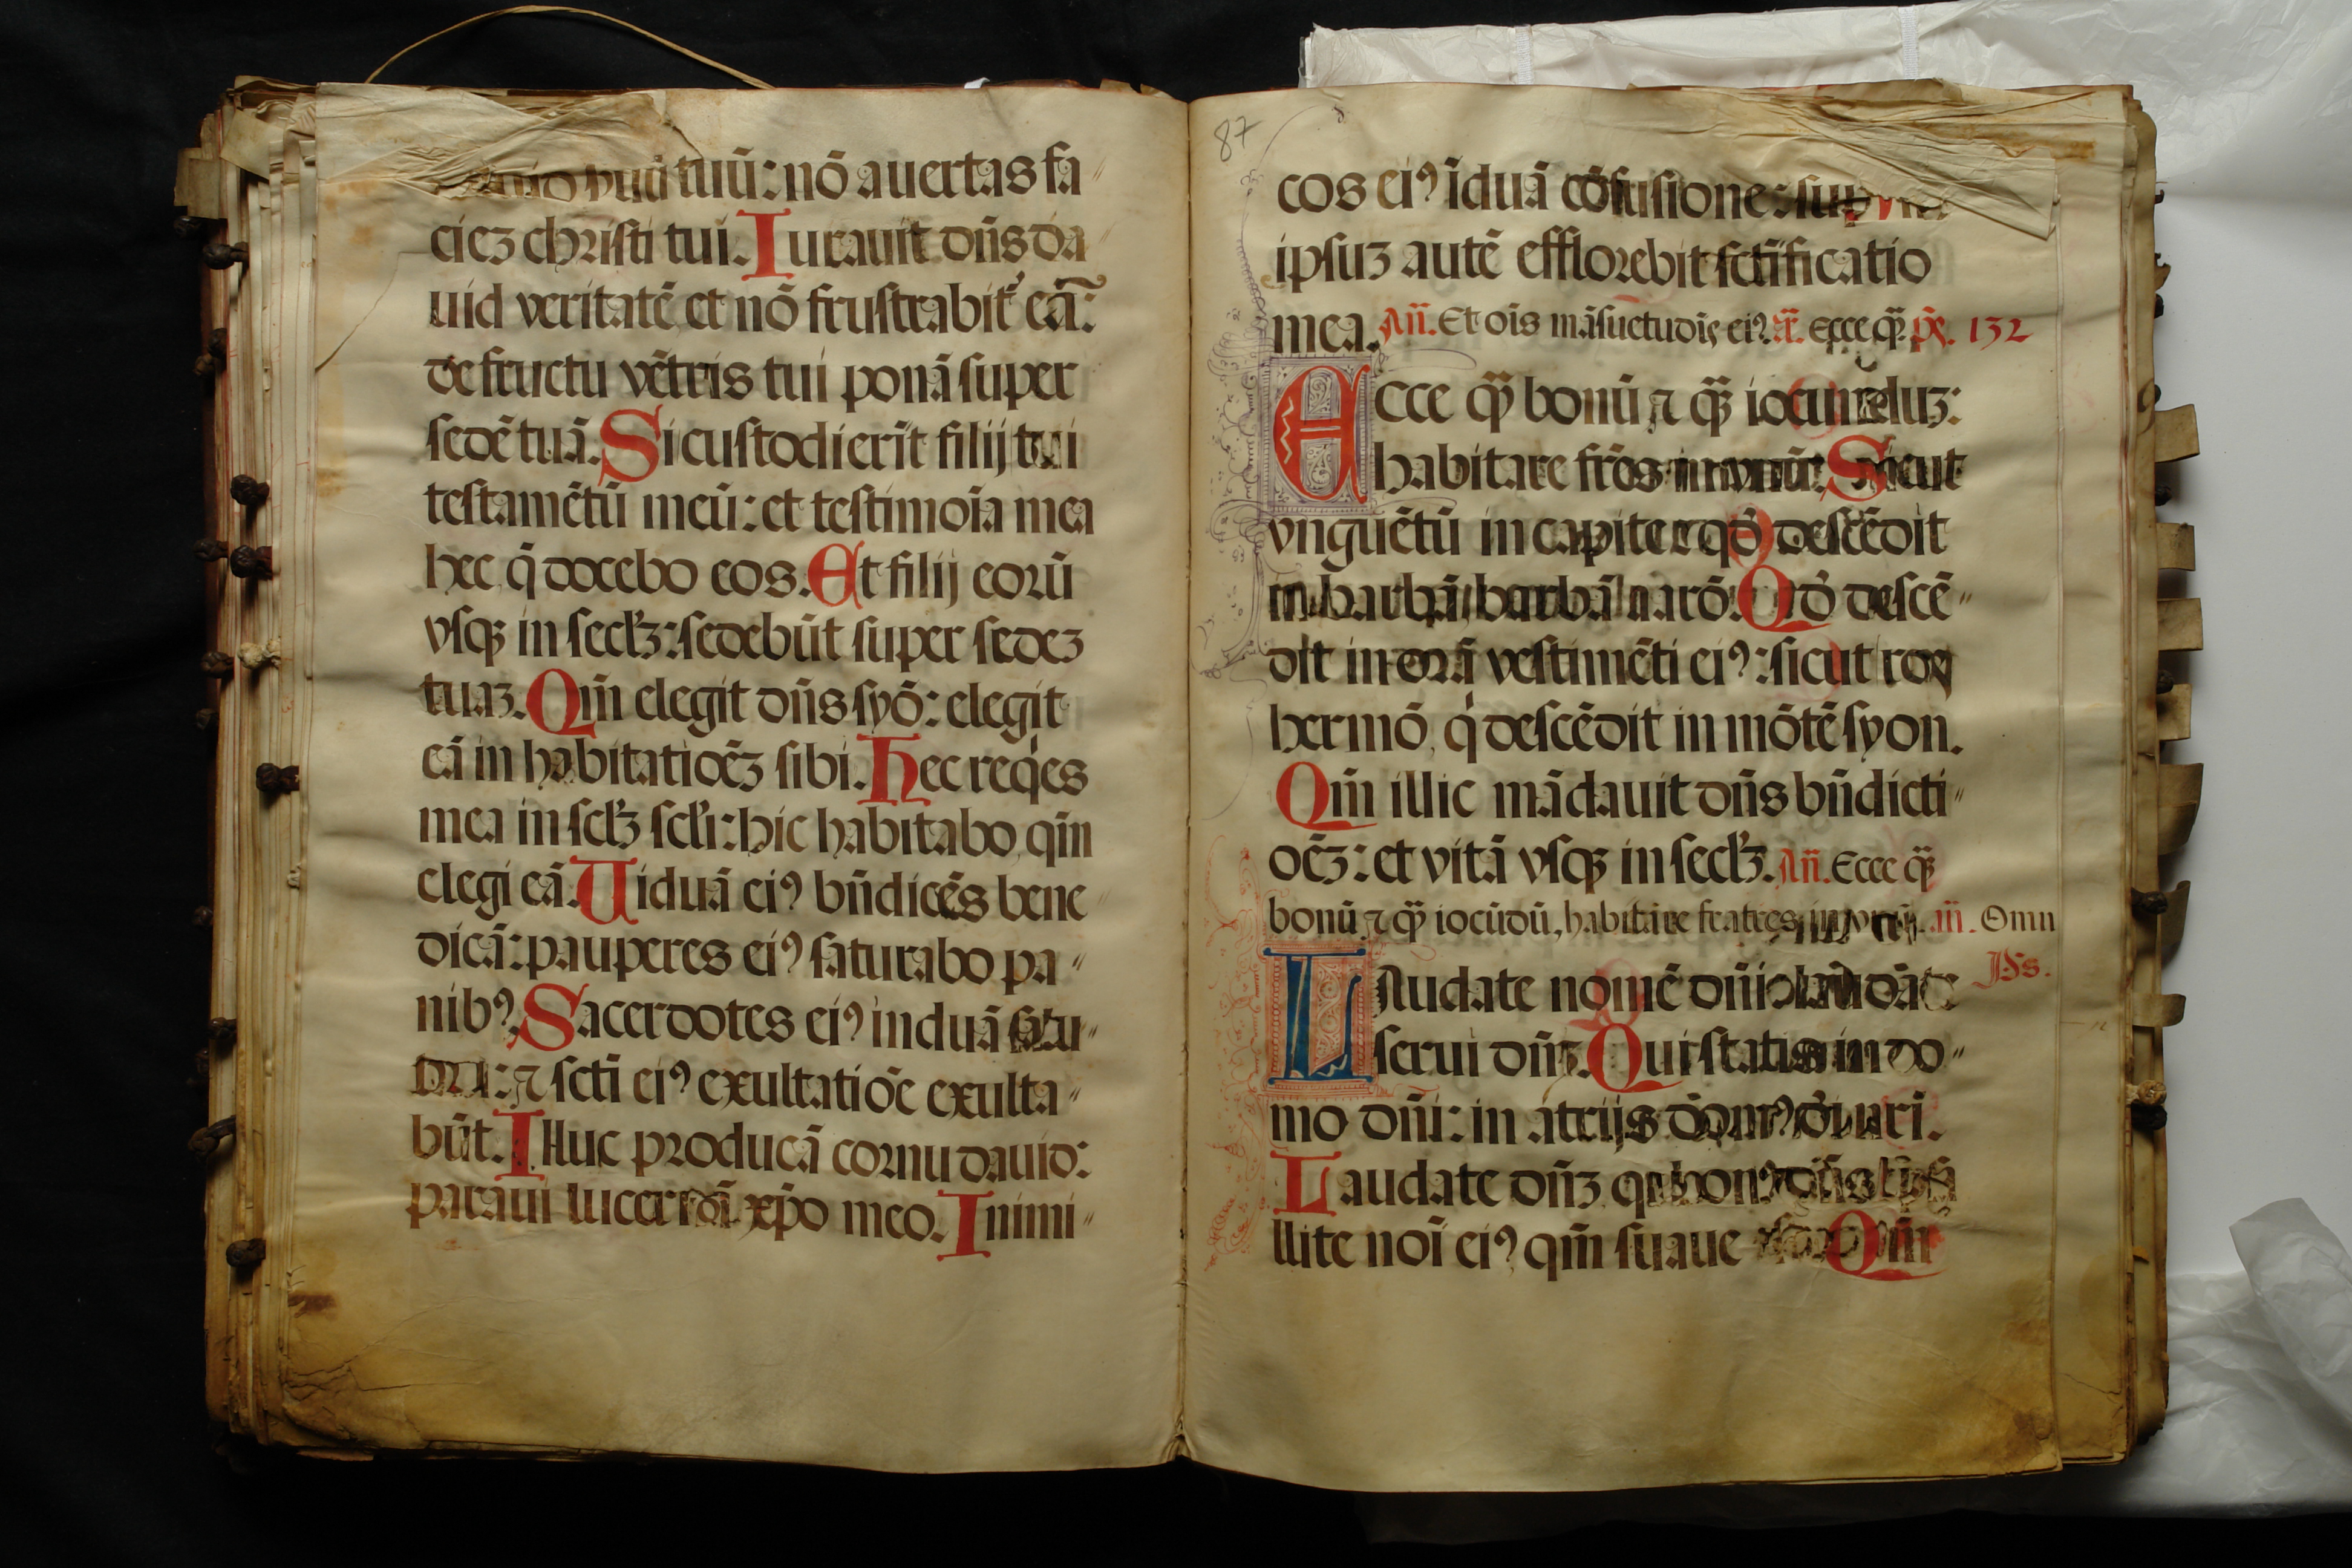 tuū: nō auertas fa
ciez christi tui. Iurauit dn̄s da
uid veritatē et nō frustrabit᷑ eā:
de fructu vētris tui ponā super
sedē tuā. Si custodierīt filij tui
testamētū meū: et testimoīa mea
hec, q̄ docebo eos. Et filij eorū
vsqꝫ in secłꝫ: sedebūt super sedez
tuaꝫ. Qm̄ elegit dn̄s syō: elegit
eā in habitatioēꝫ sibi. Hec reqͥes
mea in scłꝫ scłi: hic habitabo, qm̄
elegi eā. Uiduā eiꝰ bn̄dicēs bene
dicā: pauperes eiꝰ saturabo pa
nibꝰ. Sacerdotes eiꝰ induā salu
tari: ⁊ sctī eiꝰ exultatiōe exulta
būt. IHuc producā cornu dauid:
paraui lucernā xp̄o meo. Inimi
87
cos eiꝰ īduā cōfusione: sup
ipsuꝫ autē efflorebit sctīficatio
mea. An̄. Et oīs māsuetudīs eiꝰ. Ecce qͣꝫ. ps. 132
Ecce qͣꝫ bonū ⁊ qͣꝫ iocunduꝫ:
habitare frēs in vnū. Sicut
vnguētū in capite qd̄ descēdit
in barbā, barbā aarō. Qd̄ descē
dit in orā vestimēti eiꝰ: sicut ros
hermō, qͥ descēdit in mōtē syon.
Qm̄ illic mādauit dn̄s bn̄dicti
oēꝫ: et vitā vsqꝫ in secłꝫ. An̄. Ecce qͣꝫ
bonū ⁊ qͣꝫ iocūdū, habitare fratres in vnū. an̄. Omn
Ps.
Laudate nomē dn̄i laudāte
serui dn̄ꝫ. Qui statis in do
mo dn̄i: in atrijs domꝰ dei nri.
Laudate dn̄ꝫ qꝛ bonꝰ dn̄s
llite noī eiꝰ qm̄ suaue Qm̄